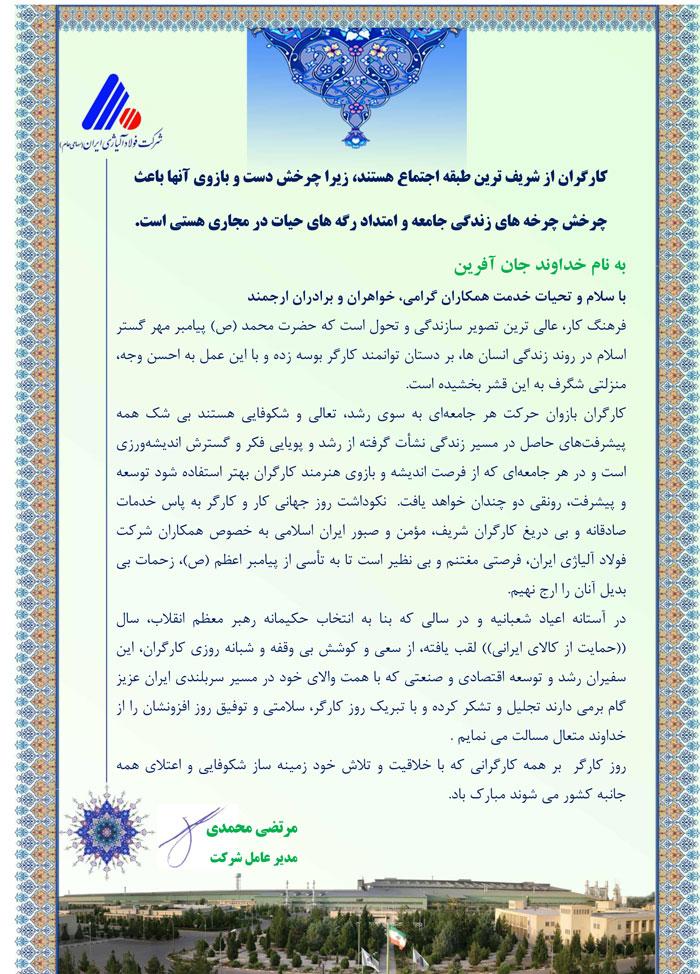 شرکت فولاد آلیاژی ایران (سهامی عام)
کارگران از شریف ترین طبقه اجتماع هستند، زیرا چرخش دست و بازوی آنها باعث
چرخش چرخه های زندگی جامعه و امتداد رگه های حیات در مجاری هستی است.
به نام خداوند جان آفرین
با سلام و تحیات خدمت همکاران گرامی، خواهران و برادران ارجمند
فرهنگ کار، عالی ترین تصویر سازندگی و تحول است که حضرت محمد (ص) پیامبر مهر گستر
اسلام در روند زندگی انسان ها، بر دستان توانمند کارگر بوسه زده و با این عمل به احسن وجه،
منزلتی شگرف به این قشر بخشیده است.
کارگران بازوان حرکت هر جامعه‌ای به سوی رشد، تعالی و شکوفایی هستند بی شک همه
پیشرفت‌های حاصل در مسیر زندگی نشأت گرفته از رشد و پویایی فکر و گسترش اندیشه‌ورزی
است و در هر جامعه‌ای که از فرصت اندیشه و بازوی هنرمند کارگران بهتر استفاده شود توسعه
و پیشرفت، رونقی دو چندان خواهد یافت. نکوداشت روز جهانی کار و کارگر به پاس خدمات
صادقانه و بی دریغ کارگران شریف، مؤمن و صبور ایران اسلامی به خصوص همکاران شرکت
فولاد آلیاژی ایران، فرصتی مغتنم و بی نظیر است تا به تأسی از پیامبر اعظم (ص)، زحمات بی
بدیل آنان را ارج نهیم.
در آستانه اعیاد شعبانیه و در سالی که بنا به انتخاب حکیمانه رهبر معظم انقلاب، سال
((حمایت از کالای ایرانی)) لقب یافته، از سعی و کوشش بی وقفه و شبانه روزی کارگران، این
سفیران رشد و توسعه اقتصادی و صنعتی که با همت والای خود در مسیر سربلندی ایران عزیز
گام برمی دارند تجلیل و تشکر کرده و با تبریک روز کارگر، سلامتی و توفیق روز افزونشان را از
خداوند متعال مسالت می نمایم .
روز کارگر بر همه کارگرانی که با خلاقیت و تلاش خود زمینه ساز شکوفایی و اعتلای همه
جانبه کشور می شوند مبارک باد.
مرتضی محمدی
مدیر عامل شرکت